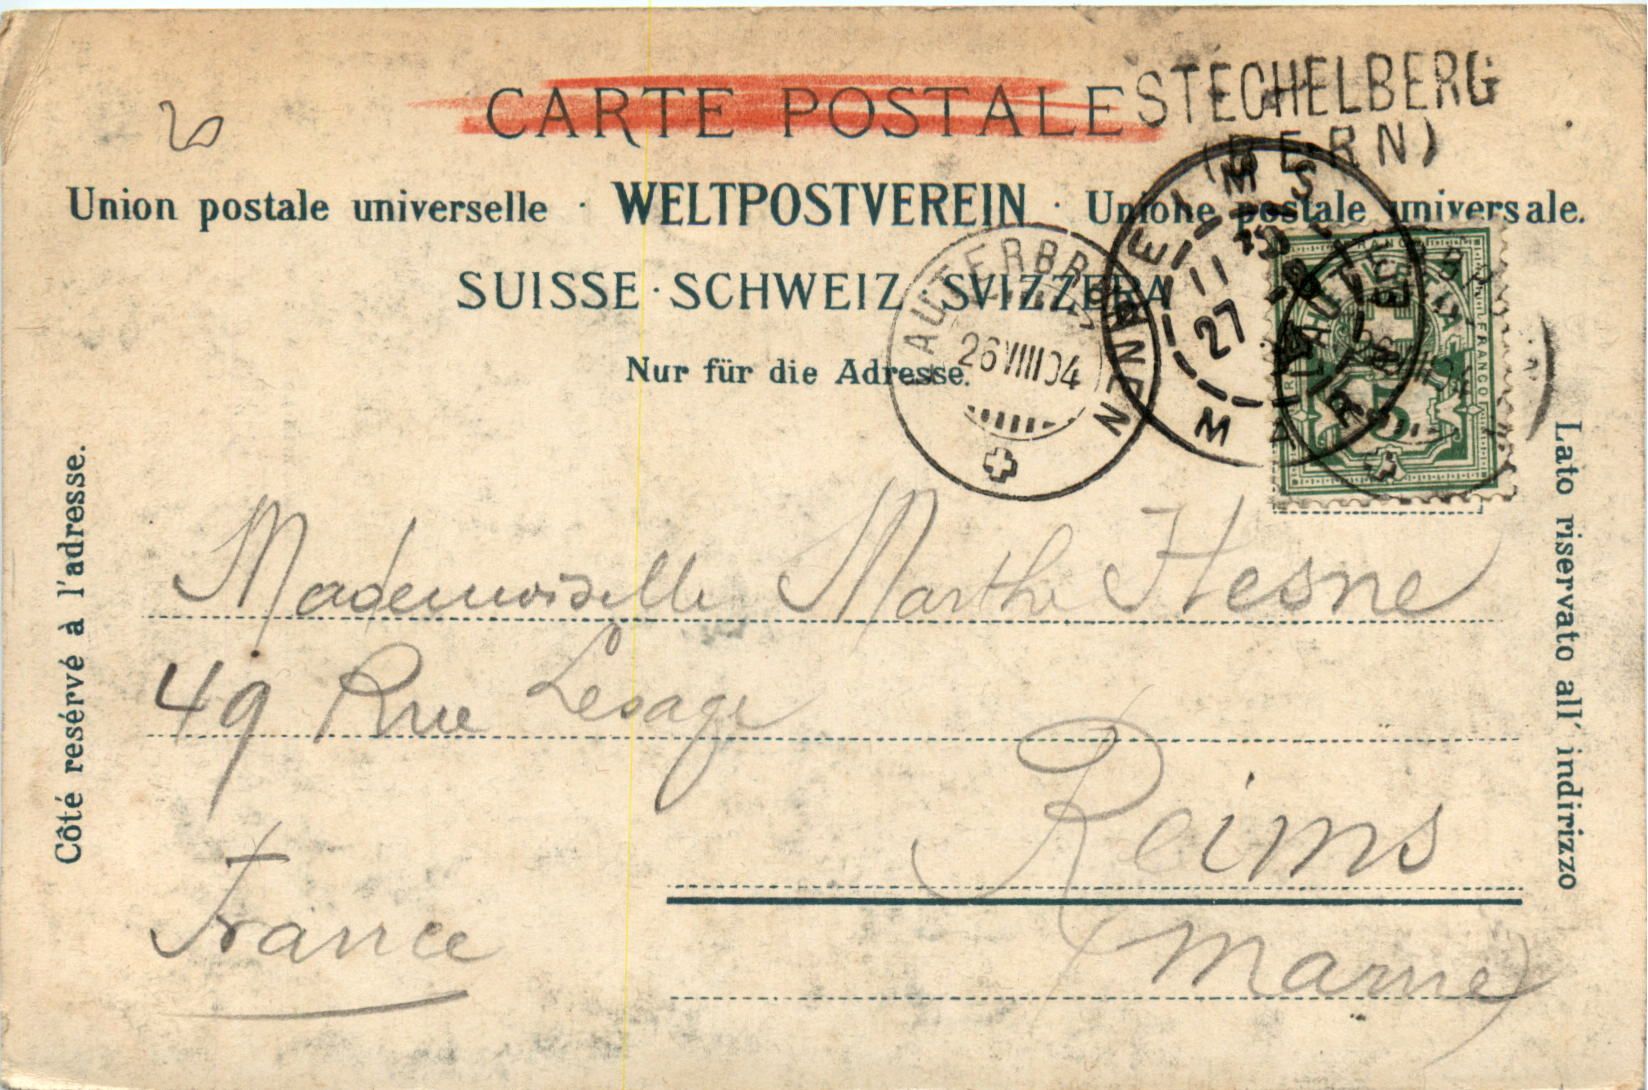 CARTE POSTALE
STECHELBERG
(BERN)
Union postale universelle · WELTPOSTVEREIN · Unione postale universale.
SUISSE · SCHWEIZ · SVIZZERA
Nur für die Adresse.
LAUTERBRUNNEN
26 VIII 04
REIMS
MARNE
11
27
FRANCO
5
Côté resérvé à l'adresse.
Lato riservato all' indirizzo
Mademoiselle Marthe Hesne
49 Rue Lesage
Reims
France
(Marne)